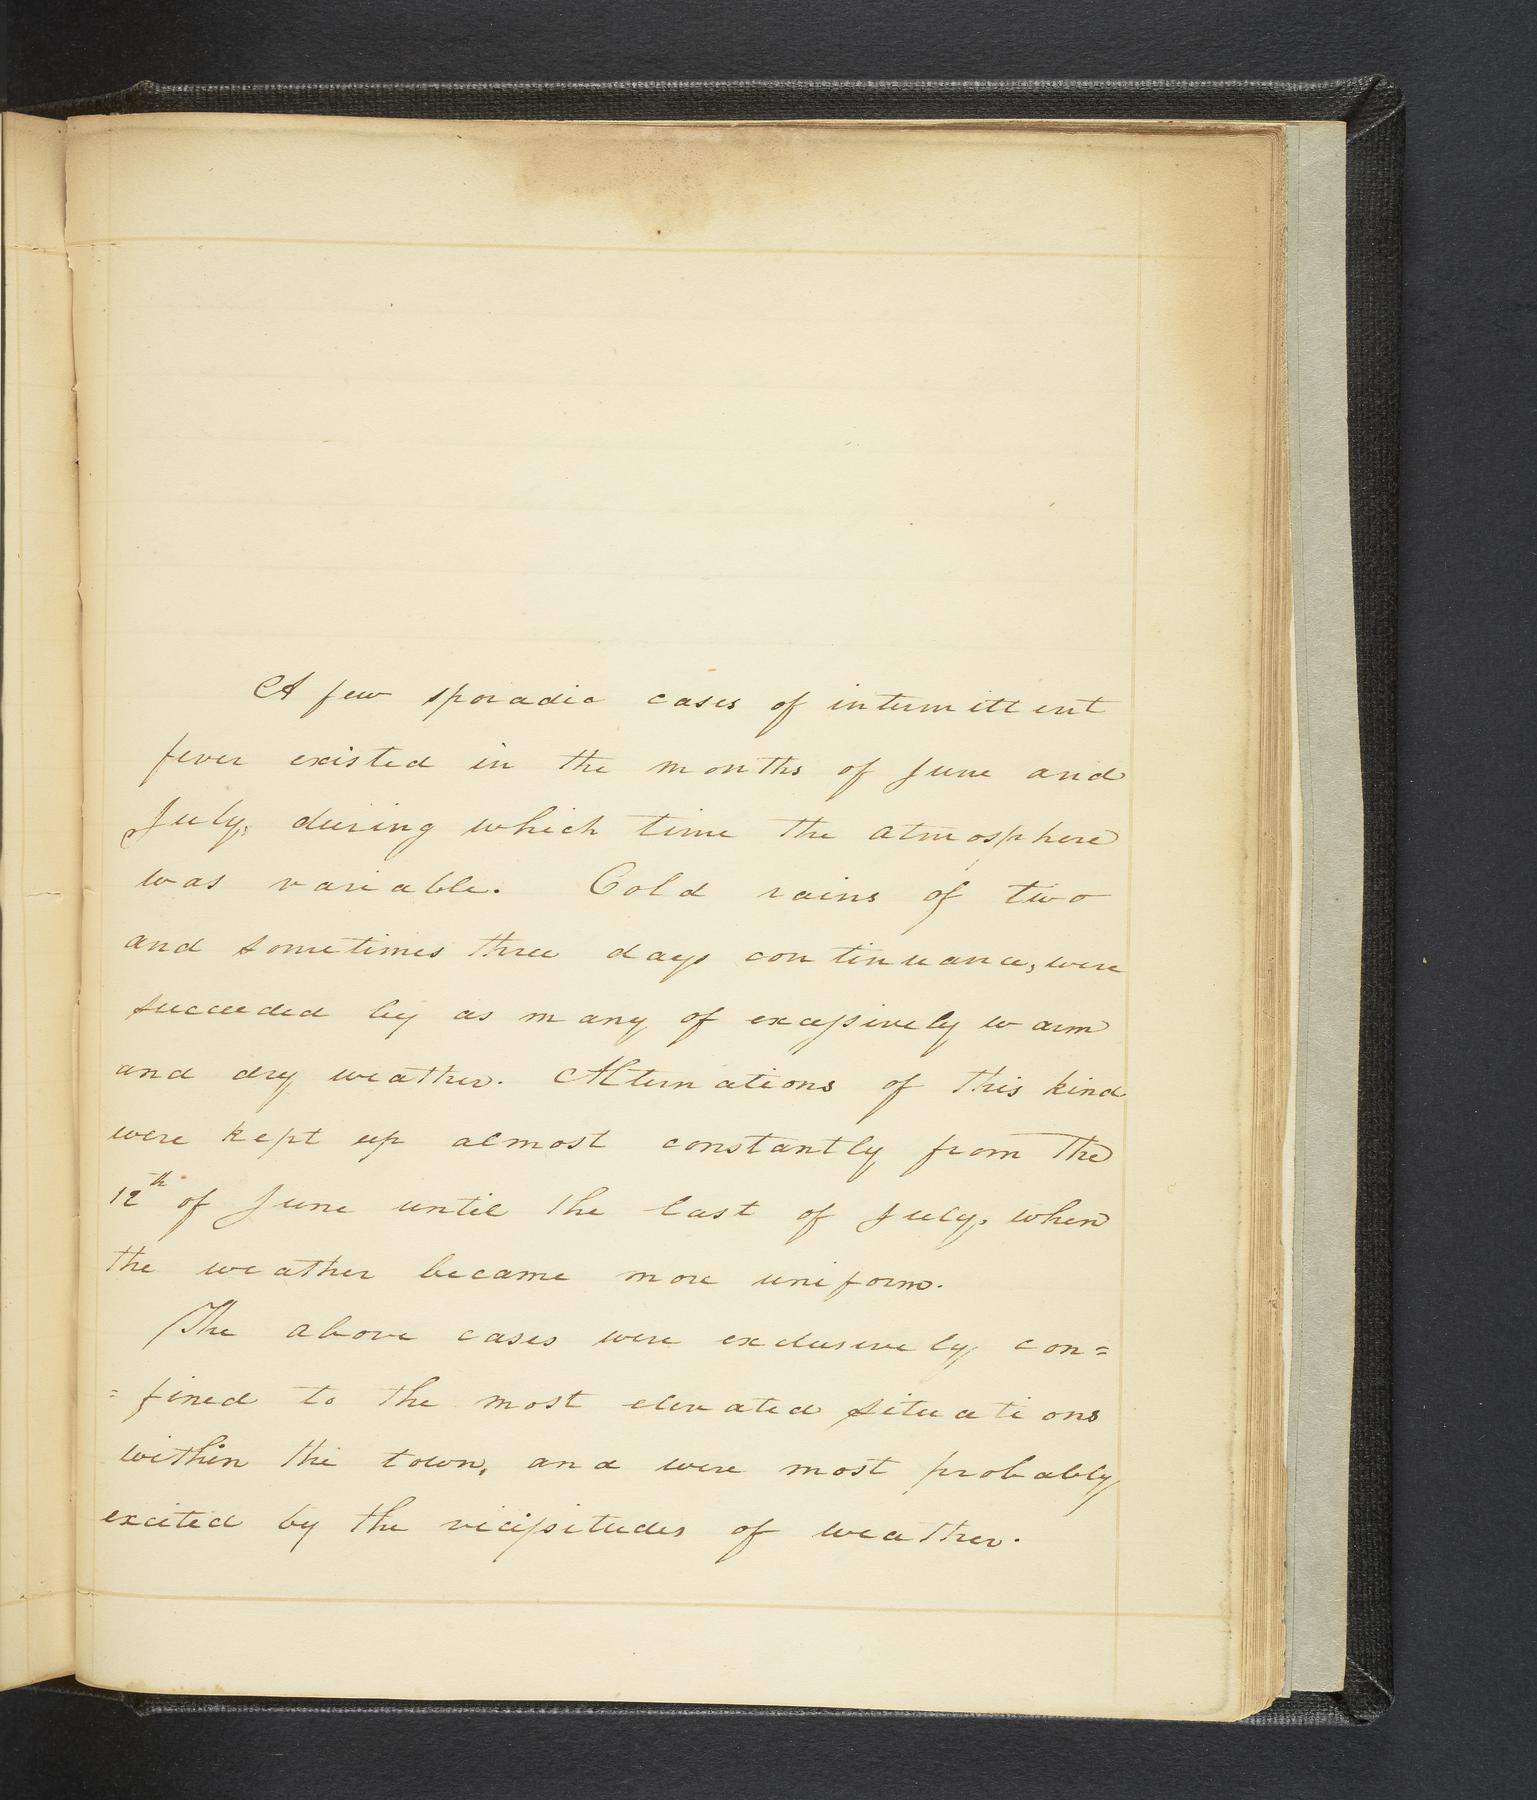 A few sporadic cases of intermittent
fever existed in the months of June and
July, during which time the atmosphere
was variable. Cold rains of two
and sometimes three days continuance, were
succeeded by as many of excessively warm
and dry weather. Alternations of this kind
were kept up almost constantly from the
12th of June until the last of July, when
the weather became more uniform.
The above cases were exclusively con=
=fined to the most elevated situations
within the town, and were most probably
excited by the vicissitudes of weather.